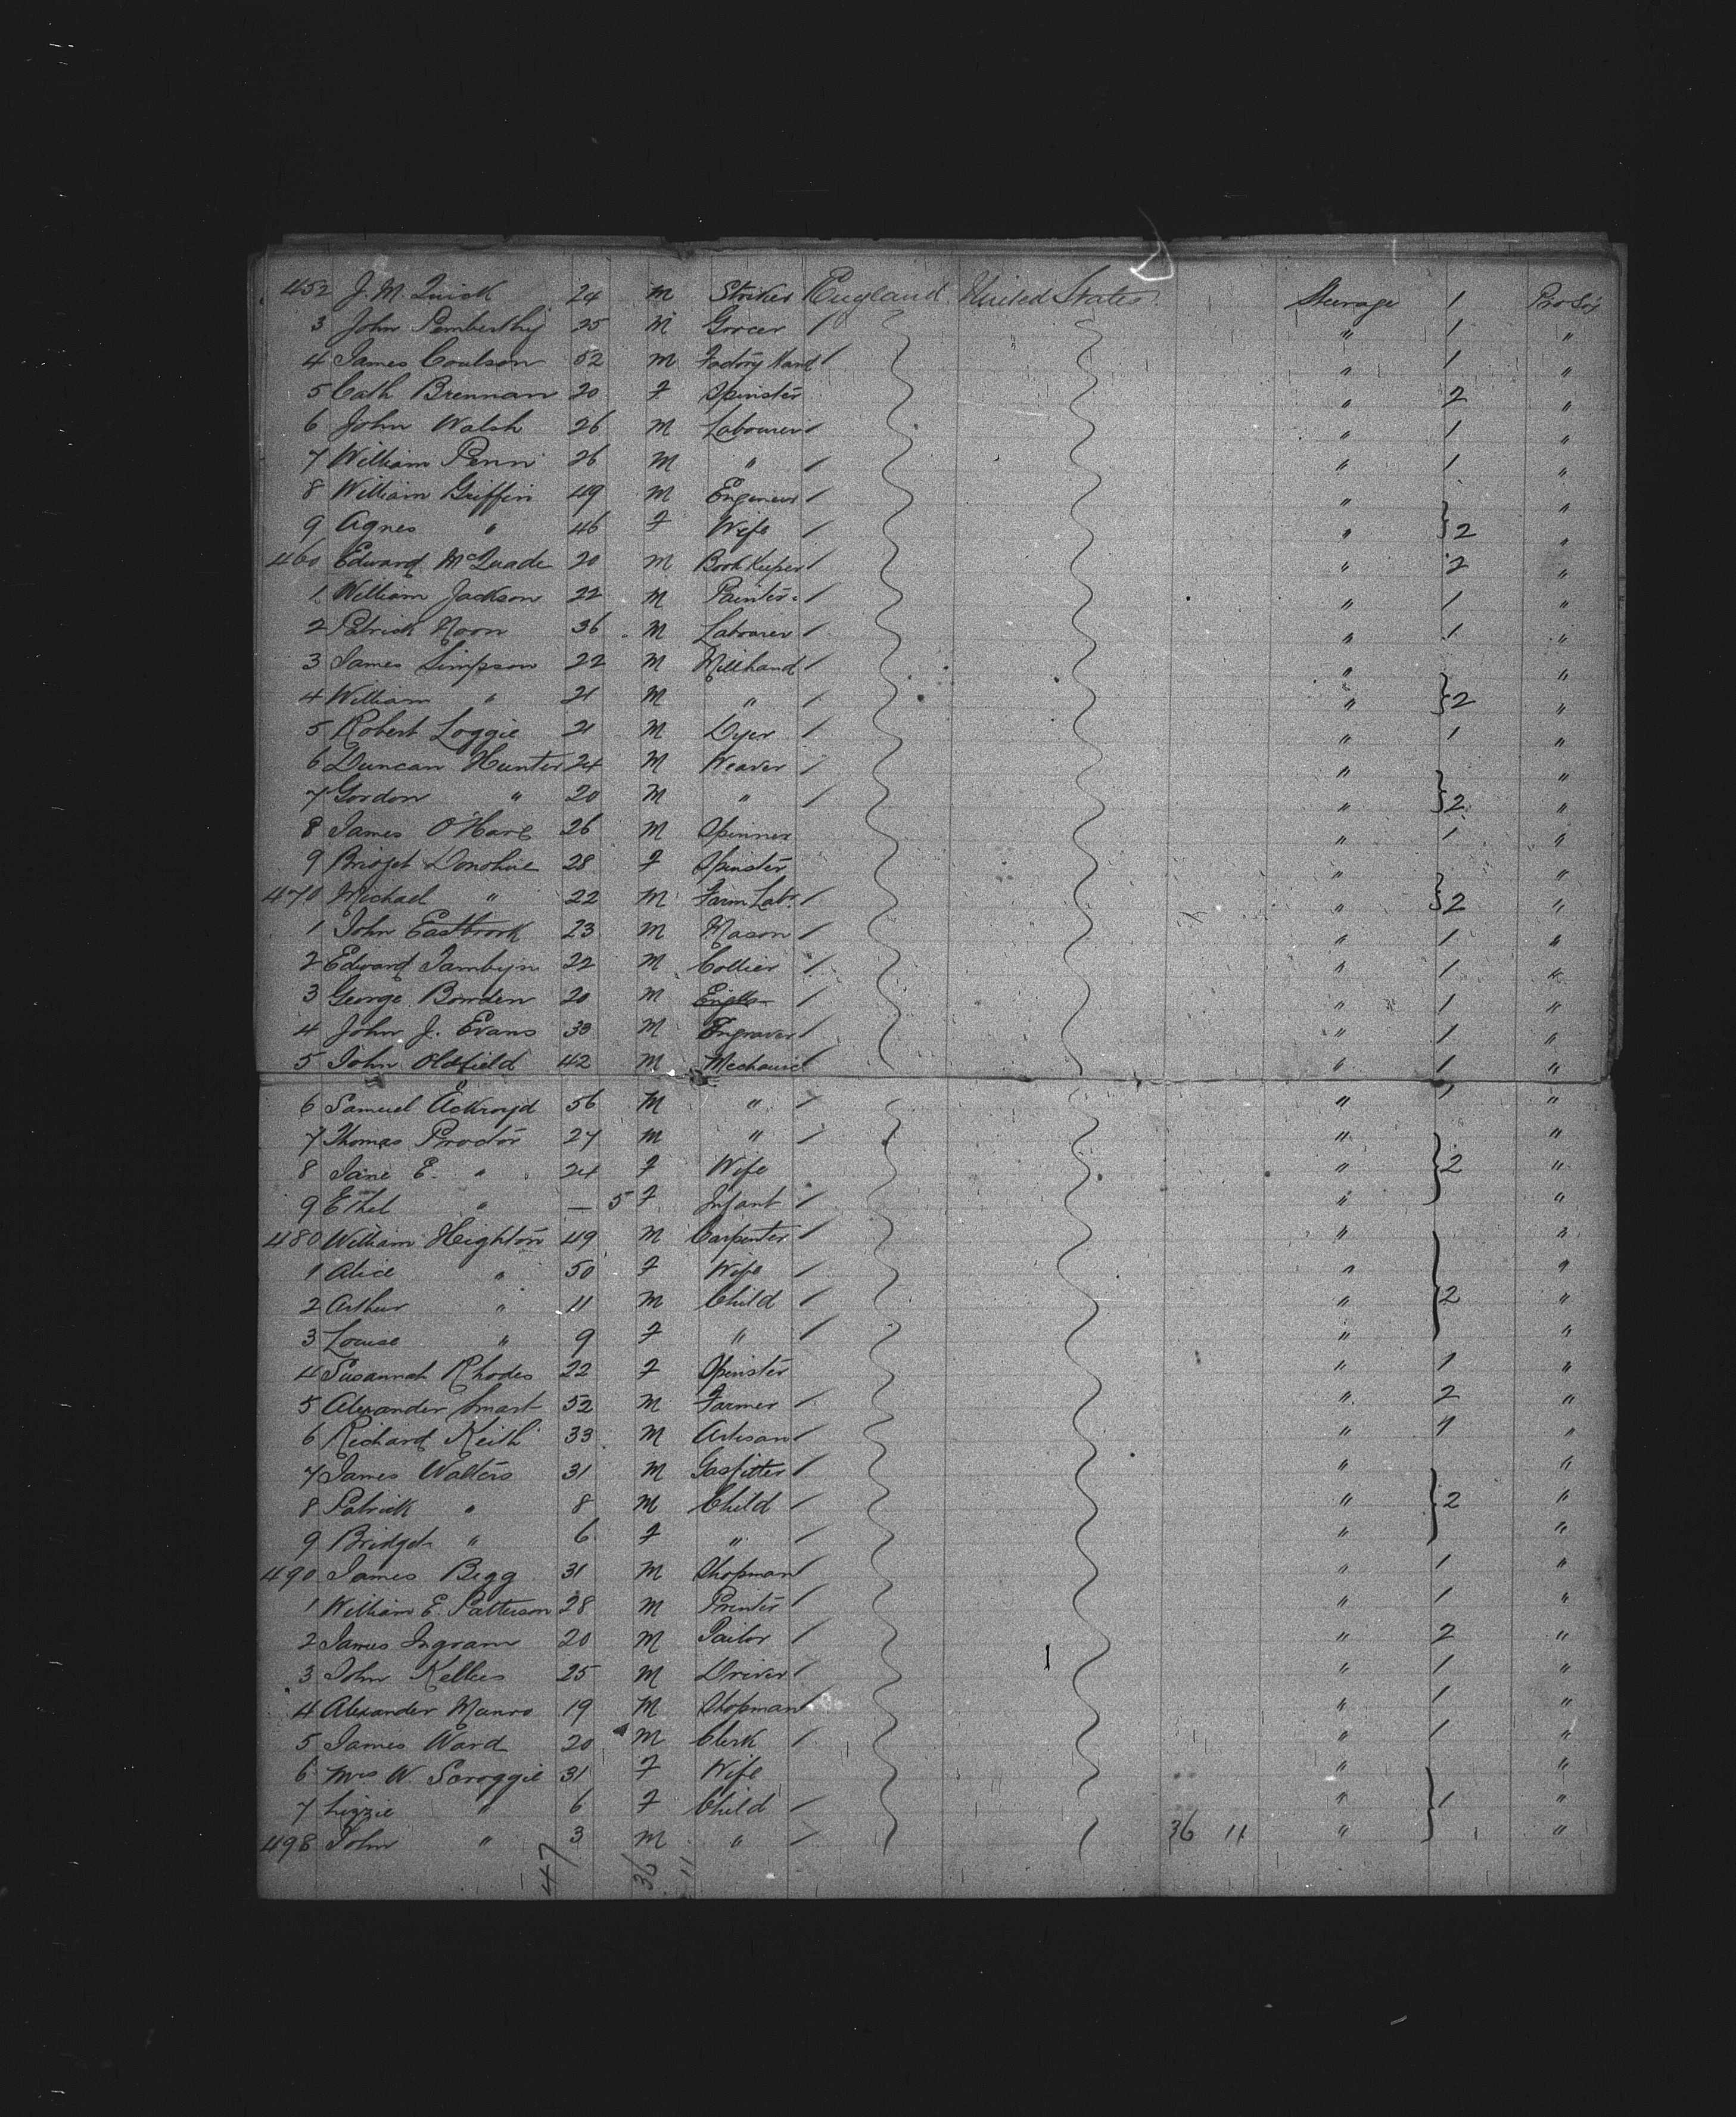 452 J. M. Quick 24 M Striker England United States Steerage 1 Pro Sj
3 John Pemberthy 25 M Grocer / " 1 "
4 James Coulson 52 M Factory Hand / " 1 "
5 Cath Brennan 20 F Spinster " 2 "
6 John Walsh 26 M Labourer / " 1 "
7 William Penn 26 M " / " 1 "
8 William Griffin 49 M Engineer / " "
9 Agnes " 46 F Wife / " } 2 "
460 Edward McQuade 20 M Book Keeper / " 2 "
1 William Jackson 22 M Painter / " 1 "
2 Patrick Noon 36 M Labourer / " 1 "
3 James Simpson 22 M Millhand / " "
4 William " 21 M " / " } 2 "
5 Robert Loggie 21 M Dyer / " 1 "
6 Duncan Hunter 24 M Weaver / " "
7 Gordon " 20 M " / " } 2 "
8 James O'Hare 26 M Spinner " 1 "
9 Bridget Donohue 28 F Spinster " "
470 Michael " 22 M Farm Lab. / " } 2 "
1 John Eastbrook 23 M Mason / " 1 "
2 Edward Jambyn 22 M Collier / " 1 "
3 George Bowden 20 M / " 1 "
4 John J. Evans 30 M Engraver / " 1 "
5 John Oldfield 42 M Mechanic / " 1 "
6 Samuel Ackroyd 56 M " / " 1 "
7 Thomas Proctor 27 M " / " "
8 Jane E. " 24 F Wife " } 2 "
9 Ethel " — 5 F Infant / " "
480 William Heighton 49 M Carpenter / " "
1 Alice " 50 F Wife / " "
2 Arthur " 11 M Child / " } 2 "
3 Louise " 9 F " / " "
4 Susannah Rhodes 22 F Spinster " 1 "
5 Alexander Smart 52 M Farmer / " 2 "
6 Richard Keith 33 M Artisan / " 1 "
7 James Walters 31 M Gasfitter / " "
8 Patrick " 8 M Child / " } 2 "
9 Bridget " 6 F " / " "
490 James Begg 31 M Shopman / " 1 "
1 William E. Patterson 28 M Printer / " 1 "
2 James Ingram 20 M Tailor / " 2 "
3 John Kellas 25 M Driver / " 1 "
4 Alexander Munro 19 M Shopman / " 1 "
5 James Ward 20 M Clerk / " 1 "
6 Mrs W. Scroggie 31 F Wife " "
7 Lizzie " 6 F Child / " } 1 "
498 John " 3 M " / 36 11 " "
47 36 11